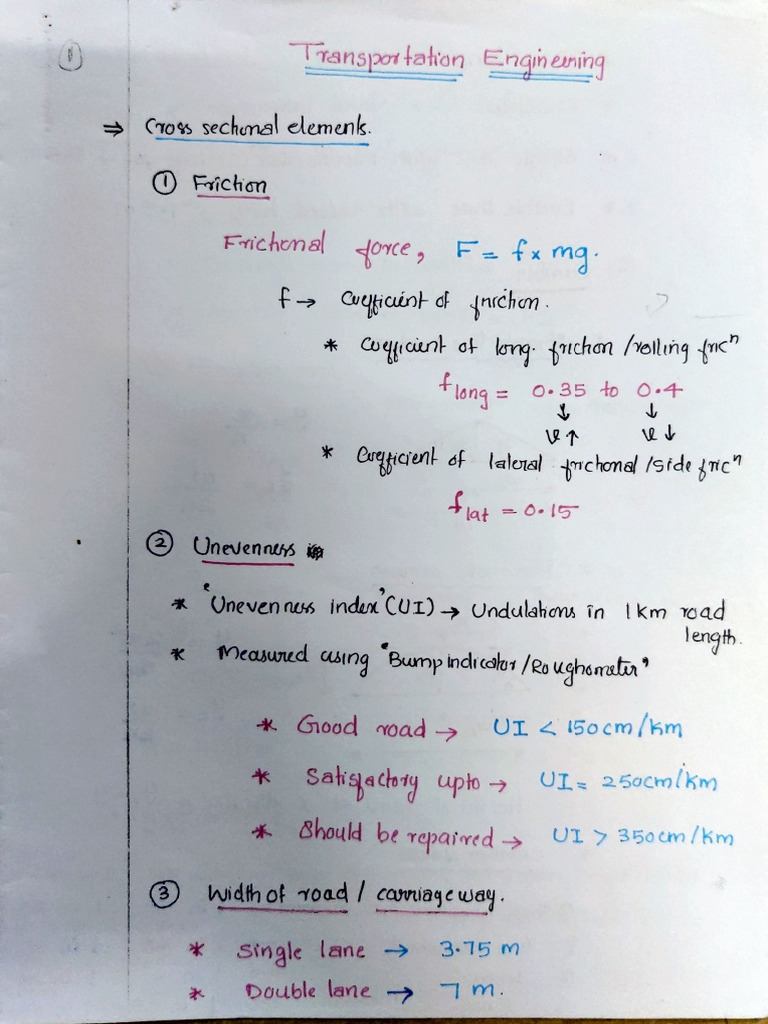 1
Transportation Engineering
⇒ Cross sectional elements.
① Friction
Frictional force, F = f x mg.
f → Coefficient of friction.
* Coefficient of long. friction / rolling fricⁿ
f long = 0.35 to 0.4
↓ ↓
V↑ V↓
* Coefficient of lateral frictional / side fricⁿ
f lat = 0.15
② Unevenness
* "Unevenness index" (UI) → Undulations in 1 km road
length.
* Measured using "Bump indicator / Roughometer"
* Good road → UI < 150 cm/km
* Satisfactory upto → UI = 250cm/km
* Should be repaired → UI > 350cm/km
③ Width of road / carriage way.
* Single lane → 3.75 m
* Double lane → 7 m.